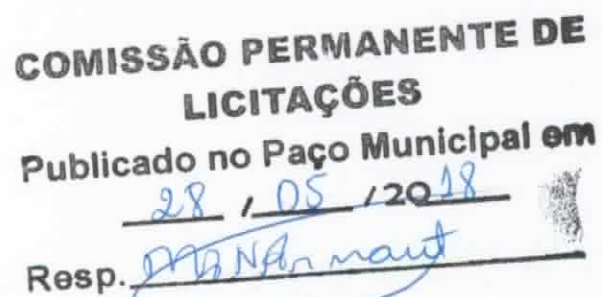 COMISSÃO PERMANENTE DE
LICITAÇÕES
Publicado no Paço Municipal em
28 / 05 /2018
Resp.